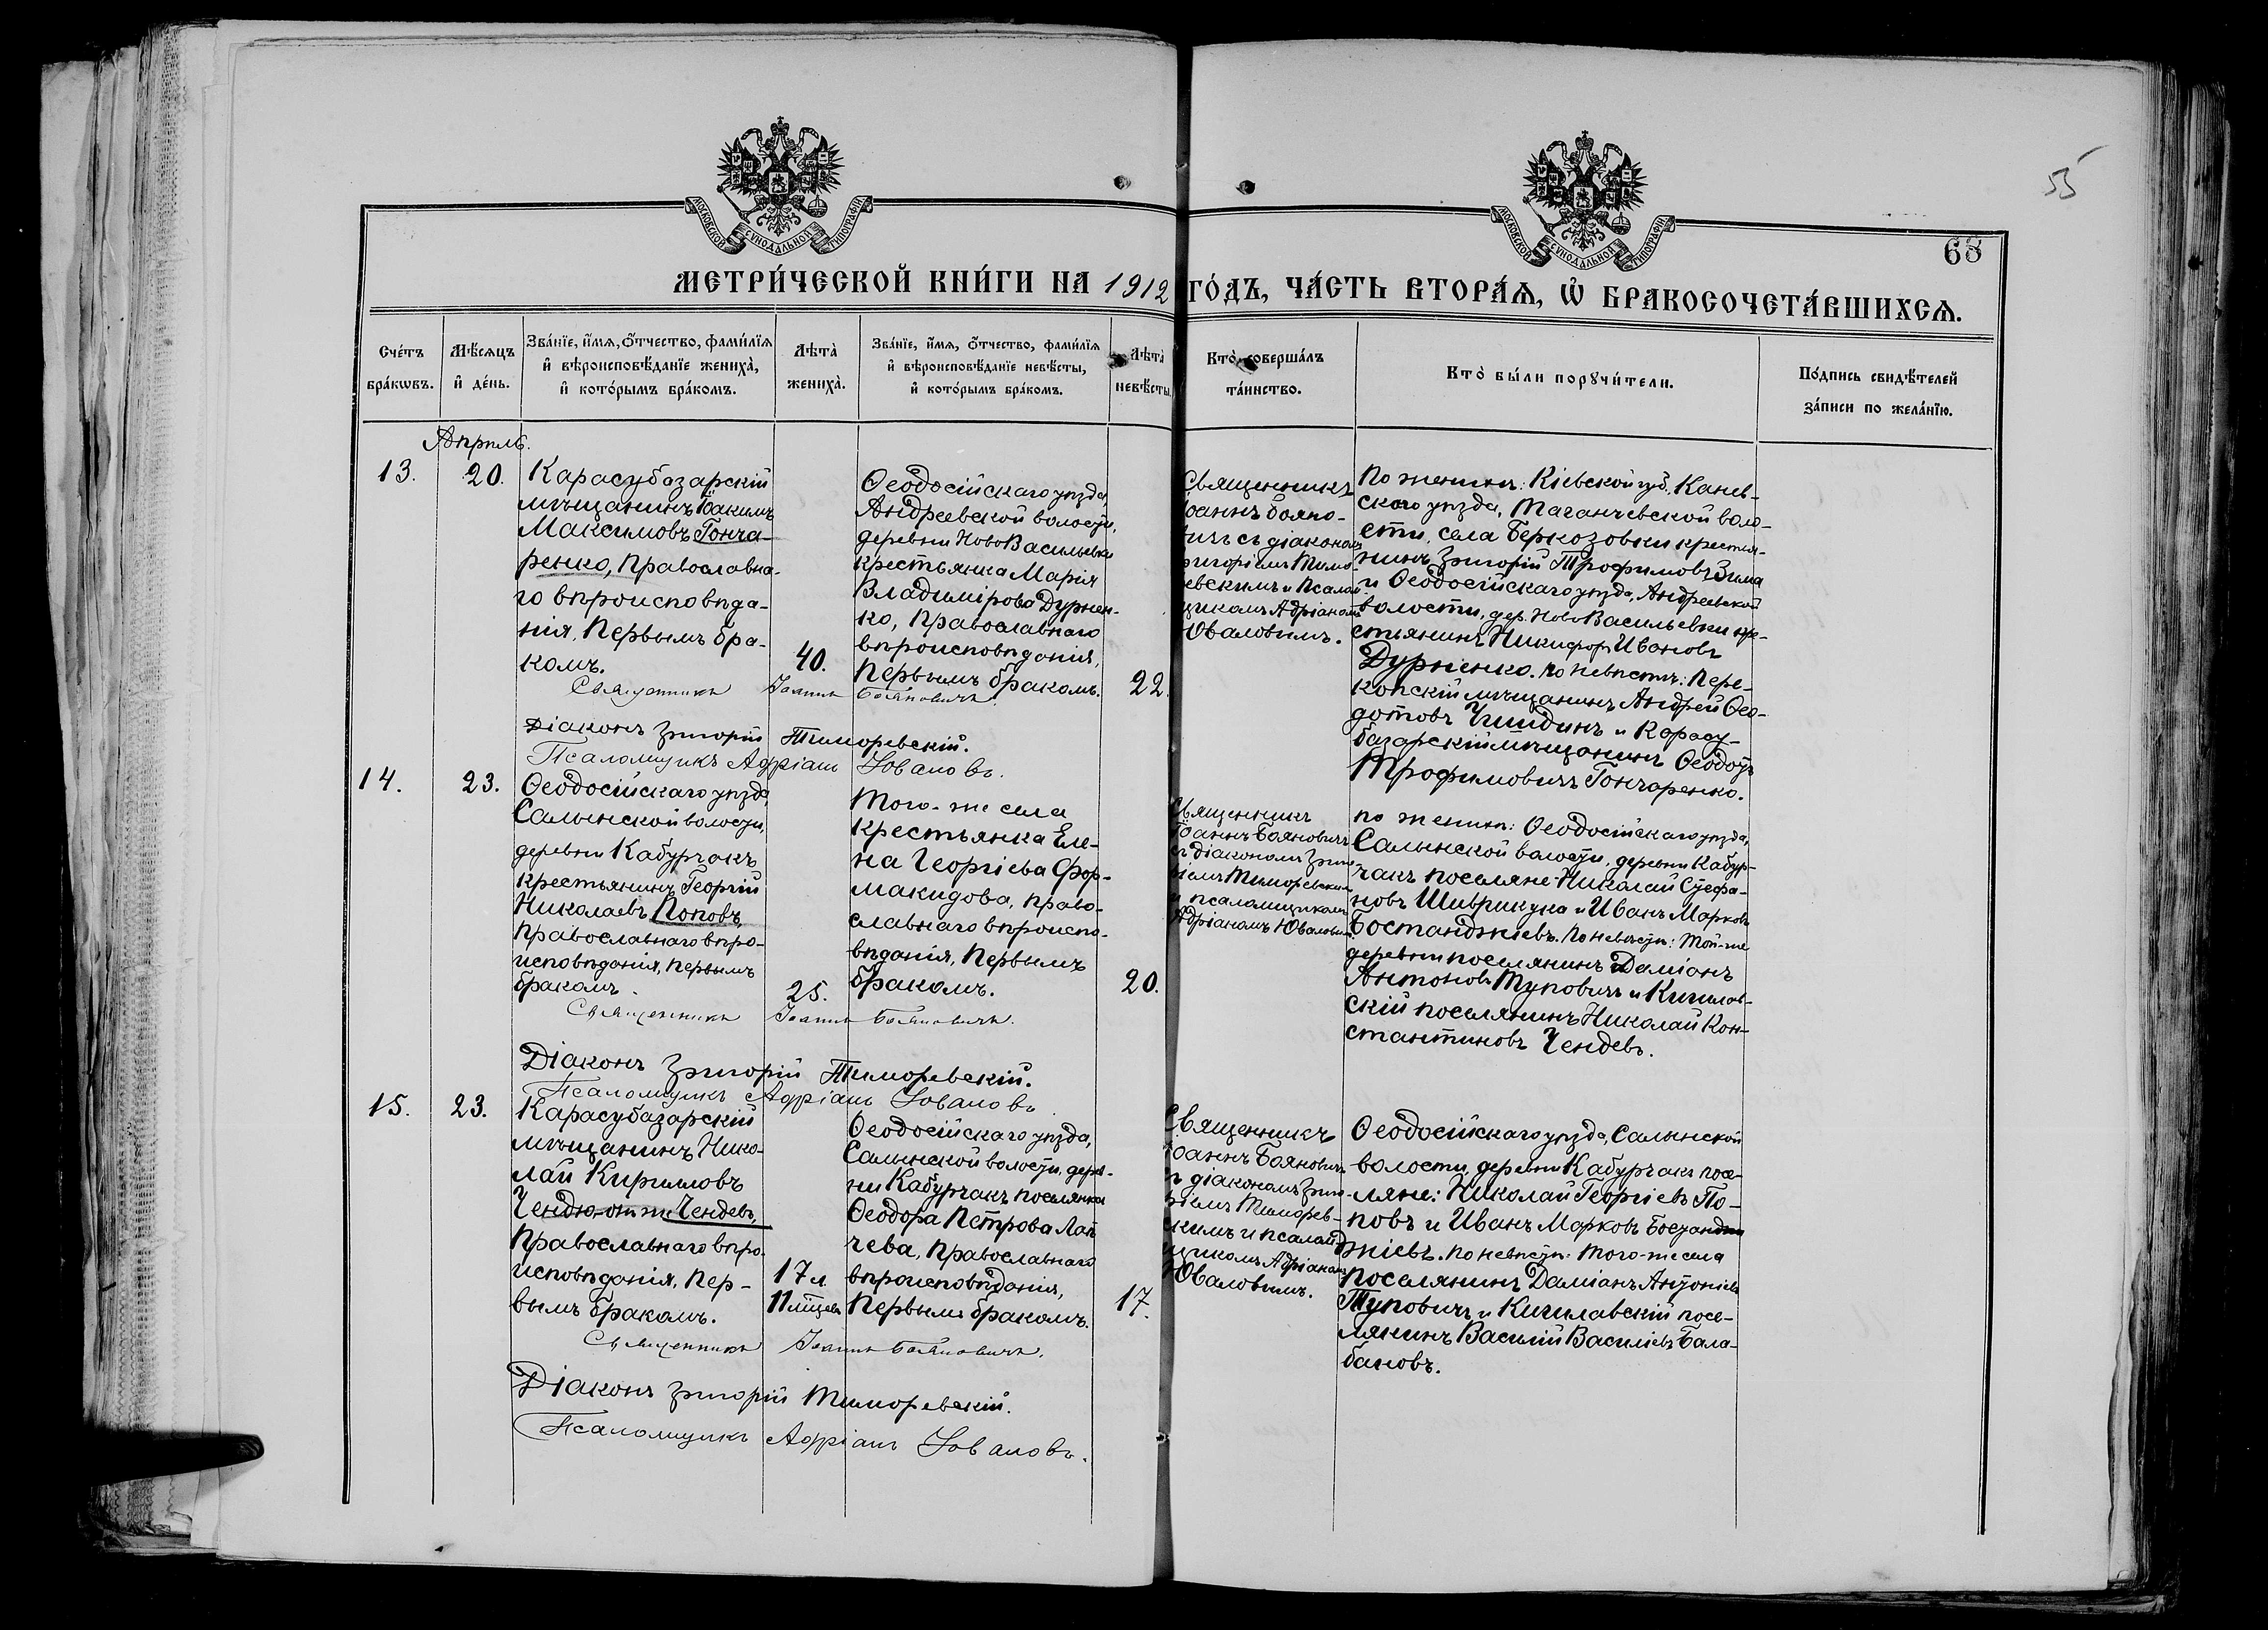 55
68
МОСКОВСКОЙ СѴНОДАЛЬНОЙ ТИПОГРАФІИ
МОСКОВСКОЙ СѴНОДАЛЬНОЙ ТИПОГРАФІИ
МЕТРИ́ЧЕСКОЙ КНИ́ГИ НА 1912 ГО́ДЪ, ЧА́СТЬ ВТОРА́Ѧ, Ѽ БРАКОСОЧЕТА́ВШИХСѦ.
Сче́тъ
бра́кѡвъ.
Мѣ́сѧцъ
и҆ де́нь.
Зва́нїе, и҆́мѧ, ѻ҆́тчество, фами́лїѧ
и҆ вѣроисповѣ́данїе жениха̀,
и҆ кото́рымъ бра́комъ.
Лѣта̀
жениха̀.
Зва́нїе, и҆́мѧ, ѻ҆́тчество, фами́лїѧ
и҆ вѣроисповѣ́данїе невѣ́сты,
и҆ кото́рымъ бра́комъ.
Лѣта̀
невѣ́сты.
Кто̀ соверша́лъ
та́инство.
Кто̀ бы́ли порꙋчи́тели.
По́дпись свидѣ́телей
за́писи по жела́нїю.
Апрѣль.
13.
20.
Карасубазарскій
мѣщанинъ Іоакимъ
Максимовъ Гонча-
ренко, Православна-
го вѣроисповѣда-
нія, Первымъ бра-
комъ.
40.
Ѳеодосійскаго уѣзда,
Андреевской волости,
деревни НовоВасильевки
крестьянка Марія
Владимірова Дурнен-
ко, Православнаго
вѣроисповѣданія,
Первымъ бракомъ.
22.
Священникъ
Іоаннъ Бояно-
вичъ съ діакономъ
Григоріемъ Тимо-
ревскимъ и Псалом-
щикомъ Адріаномъ
Юваловымъ.
По женихѣ: Кіевской губ. Канев-
ского уѣзда, Таганчевской воло-
сти, села Беркозовки крестья-
нинъ Григорій Трофимовъ Зима
и Ѳеодосійскаго уѣзда, Андреевской
волости, дер. НовоВасильевки кре-
стьянинъ Никифоръ Ивановъ
Дурненко. По невѣстѣ: Пере-
копскій мѣщанинъ Андрей Ѳео-
дотовъ и Карасу-
базарскій мѣщанинъ Ѳеодотъ
Трофимовичъ Гончаренко.
Священникъ Іоаннъ Бояновичъ.
Діаконъ Григорій Тиморевскій.
Псаломщикъ Адріанъ Юваловъ.
14.
23.
Ѳеодосійскаго уѣзда,
Салынской волости,
деревни Кабурчакъ
крестьянинъ Георгій
Николаевъ Поповъ,
Православнаго вѣро-
исповѣданія, Первымъ
бракомъ.
25.
Того-же села
крестьянка Еле-
на Георгіева Фор-
макидова, право-
славнаго вѣроиспо-
вѣданія, Первымъ
бракомъ.
20.
Священникъ
Іоаннъ Бояновичъ
съ діакономъ Григо-
ріемъ Тиморевскимъ
и псаломщикомъ
Адріаномъ Юваловымъ.
по женихѣ: Ѳеодосійскаго уѣзда,
Салынской волости, деревни Кабур-
чакъ поселяне Николай Стефа-
новъ Шиврикука и Иванъ Марковъ
Бостанджіевъ. По невѣстѣ: Той-же
деревни поселянинъ Даміанъ
Антоновъ Туповичъ и Кишлав-
скій поселянинъ Николай Кон-
стантиновъ Чендевъ.
Священникъ Іоаннъ Бояновичъ.
Діаконъ Григорій Тиморевскій.
Псаломщикъ Адріанъ Юваловъ.
15.
23.
Карасубазарскій
мѣщанинъ Нико-
лай Кирилловъ
Чендю-онъ же Чендевъ,
Православнаго вѣро-
исповѣданія, Пер-
вымъ бракомъ.
17 л.
11 мѣсяцевъ
Ѳеодосійскаго уѣзда,
Салынской волости, дерев-
ни Кабурчакъ поселянка
Ѳеодора Петрова Лап-
чева, Православнаго
вѣроисповѣданія,
Первымъ бракомъ.
17.
Священникъ
Іоаннъ Бояновичъ
съ діакономъ Григо-
ріемъ Тиморев-
скимъ и псалом-
щикомъ Адріаномъ
Юваловымъ.
Ѳеодосійскаго уѣзда, Салынской
волости, деревни Кабурчакъ посе-
ляне: Николай Георгіевъ По-
повъ и Иванъ Марковъ Бостан
джіевъ. По невѣстѣ: Того-же села
поселянинъ Даміанъ Антоніевъ
Туповичъ и Кишлавскій посе-
лянинъ Василій Василіевъ Бала-
бановъ.
Священникъ Іоаннъ Бояновичъ.
Діаконъ Григорій Тиморевскій.
Псаломщикъ Адріанъ Юваловъ.